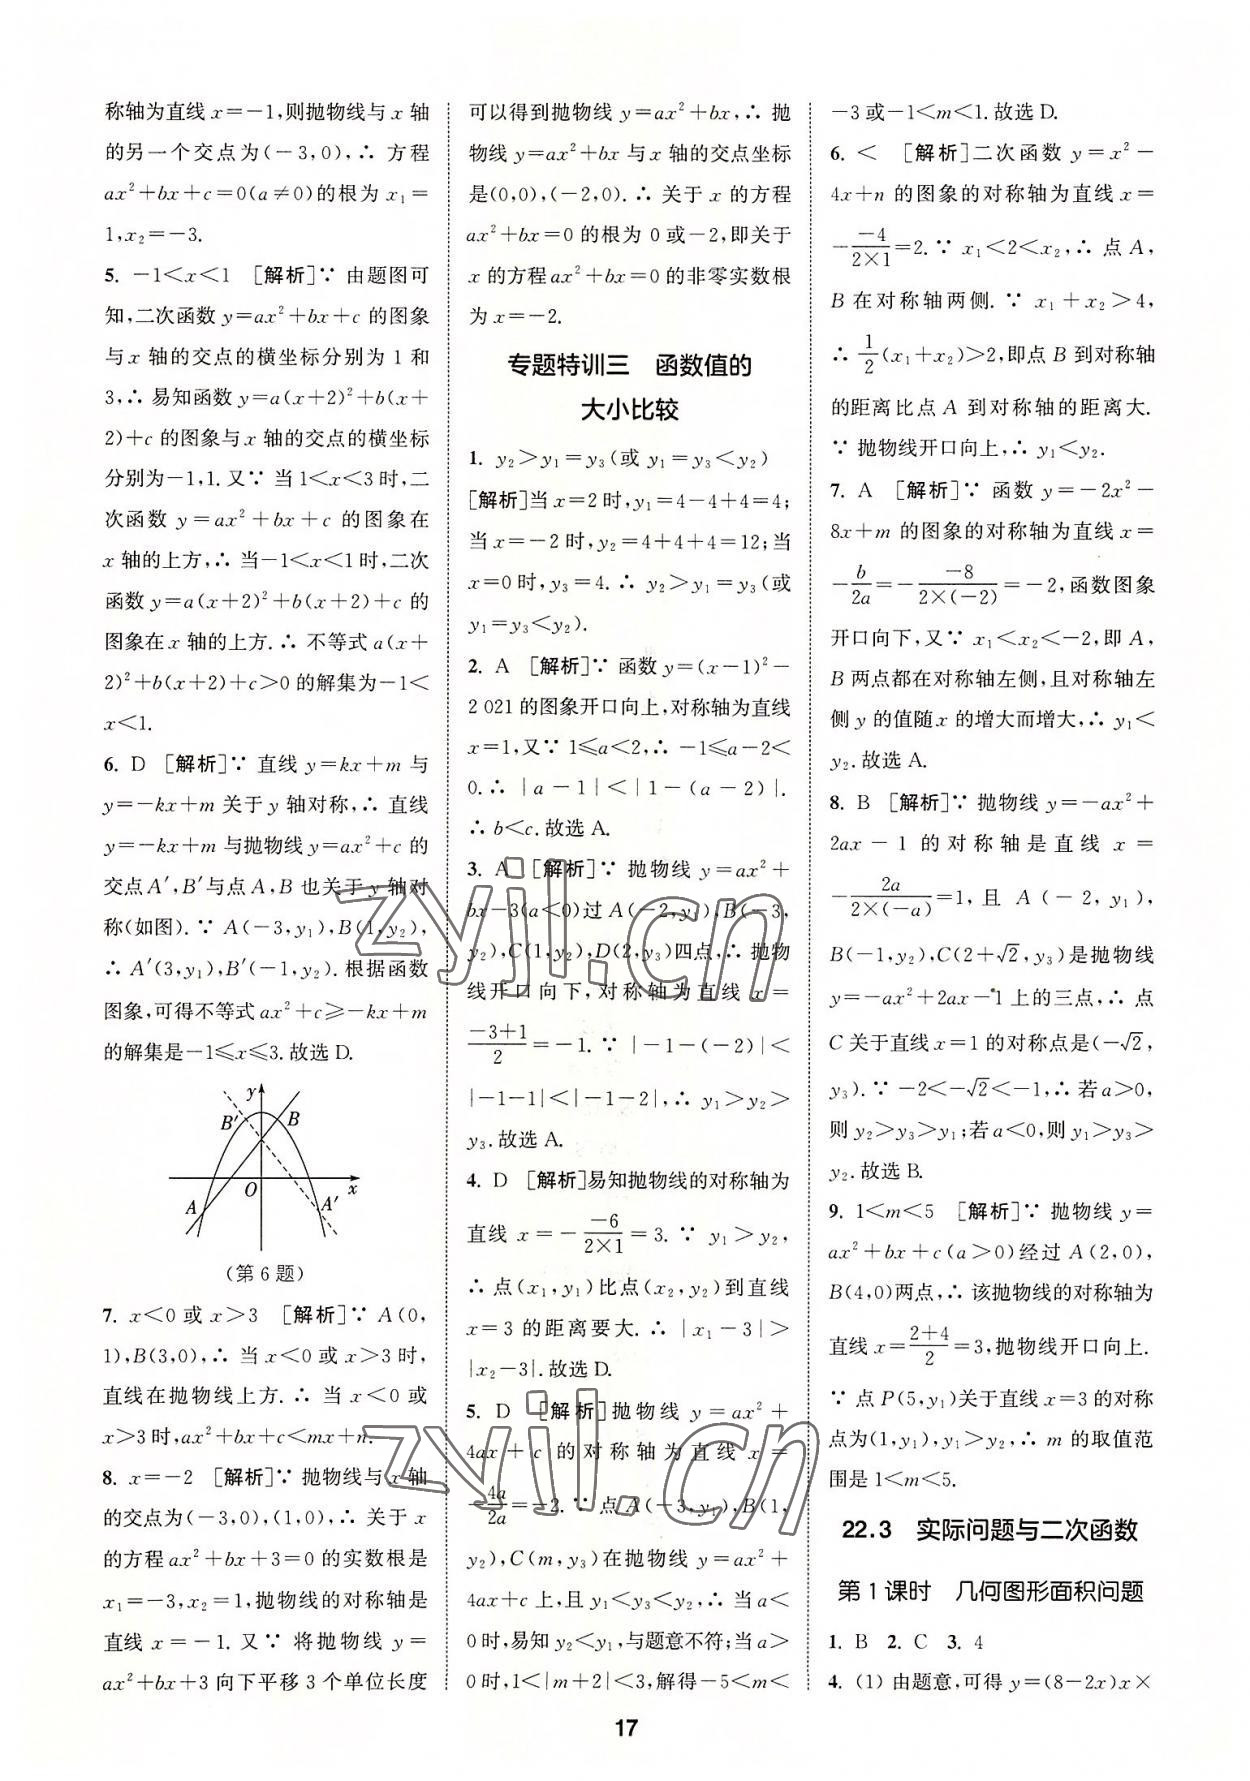 称轴为直线 x=-1,则抛物线与 x 轴
的另一个交点为(-3,0),∴ 方程
ax²+bx+c=0(a≠0)的根为 x₁=
1,x₂=-3.
5. -1<x<1 [解析]∵ 由题图可
知,二次函数 y=ax²+bx+c 的图象
与 x 轴的交点的横坐标分别为 1 和
3,∴ 易知函数 y=a(x+2)²+b(x+
2)+c 的图象与 x 轴的交点的横坐标
分别为-1,1. 又∵ 当 1<x<3 时,二
次函数 y=ax²+bx+c 的图象在
x 轴的上方,∴ 当-1<x<1 时,二次
函数 y=a(x+2)²+b(x+2)+c 的
图象在 x 轴的上方. ∴ 不等式 a(x+
2)²+b(x+2)+c>0 的解集为-1<
x<1.
6. D [解析]∵ 直线 y=kx+m 与
y=-kx+m 关于 y 轴对称,∴ 直线
y=-kx+m 与抛物线 y=ax²+c 的
交点 A′,B′与点 A,B 也关于 y 轴对
称(如图). ∵ A(-3,y₁),B(1,y₂),
∴ A′(3,y₁),B′(-1,y₂). 根据函数
图象,可得不等式 ax²+c≥-kx+m
的解集是-1≤x≤3. 故选 D.
y
B′ B
O x
A A′
(第 6 题)
7. x<0 或 x>3 [解析]∵ A(0,
1),B(3,0),∴ 当 x<0 或 x>3 时,
直线在抛物线上方. ∴ 当 x<0 或
x>3 时,ax²+bx+c<mx+n.
8. x=-2 [解析]∵ 抛物线与 x 轴
的交点为(-3,0),(1,0),∴ 关于 x
的方程 ax²+bx+3=0 的实数根是
x₁=-3,x₂=1,抛物线的对称轴是
直线 x=-1. 又∵ 将抛物线 y=
ax²+bx+3 向下平移 3 个单位长度
可以得到抛物线 y=ax²+bx,∴ 抛
物线 y=ax²+bx 与 x 轴的交点坐标
是(0,0),(-2,0). ∴ 关于 x 的方程
ax²+bx=0 的根为 0 或-2,即关于
x 的方程 ax²+bx=0 的非零实数根
为 x=-2.
专题特训三 函数值的
大小比较
1. y₂>y₁=y₃(或 y₁=y₃<y₂)
[解析]当 x=2 时,y₁=4-4+4=4;
当 x=-2 时,y₂=4+4+4=12;当
x=0 时,y₃=4. ∴ y₂>y₁=y₃(或
y₁=y₃<y₂).
2. A [解析]∵ 函数 y=(x-1)²-
2 021 的图象开口向上,对称轴为直线
x=1,又∵ 1≤a<2,∴ -1≤a-2<
0. ∴ |a-1|<|1-(a-2)|.
∴ b<c. 故选 A.
3. A [解析]∵ 抛物线 y=ax²+
bx-3(a<0)过 A(-2,y₁),B(-3,
y₂),C(1,y₂),D(2,y₃)四点,∴ 抛物
线开口向下,对称轴为直线 x=
(-3+1)/2=-1. ∵ |-1-(-2)|<
|-1-1|<|-1-2|,∴ y₁>y₂>
y₃. 故选 A.
4. D [解析]易知抛物线的对称轴为
直线 x=-(-6)/(2×1)=3. ∵ y₁>y₂,
∴ 点(x₁,y₁)比点(x₂,y₂)到直线
x=3 的距离要大. ∴ |x₁-3|>
|x₂-3|. 故选 D.
5. D [解析]抛物线 y=ax²+
4ax+c 的对称轴为直线 x=
-4a/2a=-2. ∵ 点 A(-3,y₁),B(1,
y₂),C(m,y₃)在抛物线 y=ax²+
4ax+c 上,且 y₁<y₃<y₂,∴ 当 a<
0 时,易知 y₂<y₁,与题意不符;当 a>
0 时,1<|m+2|<3,解得-5<m<
-3 或-1<m<1. 故选 D.
6. < [解析]二次函数 y=x²-
4x+n 的图象的对称轴为直线 x=
-(-4)/(2×1)=2. ∵ x₁<2<x₂,∴ 点 A,
B 在对称轴两侧. ∵ x₁+x₂>4,
∴ 1/2(x₁+x₂)>2,即点 B 到对称轴
的距离比点 A 到对称轴的距离大.
∵ 抛物线开口向上,∴ y₁<y₂.
7. A [解析]∵ 函数 y=-2x²-
8x+m 的图象的对称轴为直线 x=
-b/2a=-(-8)/(2×(-2))=-2,函数图象
开口向下,又∵ x₁<x₂<-2,即 A,
B 两点都在对称轴左侧,且对称轴左
侧 y 的值随 x 的增大而增大,∴ y₁<
y₂. 故选 A.
8. B [解析]∵ 抛物线 y=-ax²+
2ax-1 的对称轴是直线 x=
-2a/(2×(-a))=1,且 A(-2,y₁),
B(-1,y₂),C(2+√2,y₃)是抛物线
y=-ax²+2ax-1 上的三点,∴ 点
C 关于直线 x=1 的对称点是(-√2,
y₃). ∵ -2<-√2<-1,∴ 若 a>0,
则 y₂>y₃>y₁;若 a<0,则 y₁>y₃>
y₂. 故选 B.
9. 1<m<5 [解析]∵ 抛物线 y=
ax²+bx+c(a>0)经过 A(2,0),
B(4,0)两点,∴ 该抛物线的对称轴为
直线 x=(2+4)/2=3,抛物线开口向上.
∵ 点 P(5,y₁)关于直线 x=3 的对称
点为(1,y₁),y₁>y₂,∴ m 的取值范
围是 1<m<5.
22.3 实际问题与二次函数
第 1 课时 几何图形面积问题
1. B 2. C 3. 4
4. (1) 由题意,可得 y=(8-2x)x×
17
zyjl.cn
zyjl.cn